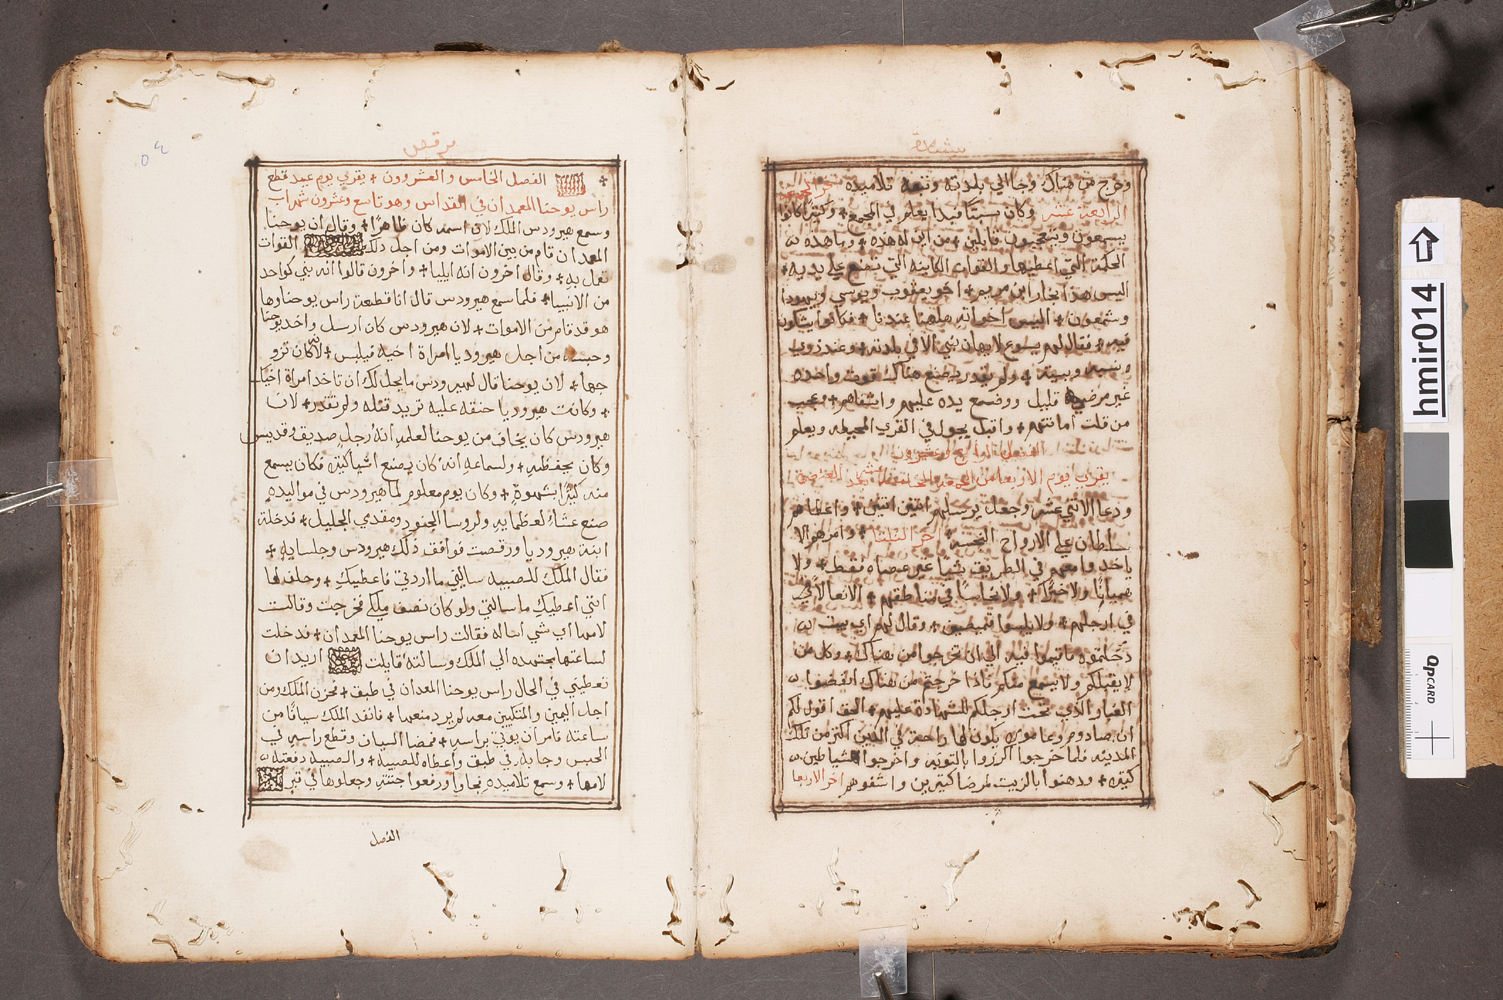 بشارة
وخرج من هناك وجا الي بلدته وتبعه تلاميذه اخر الجمعه
الرابعة عشر وكان سبتا فبدا يعلم في المجمع + وكثير كانوا
يسمعون ويتعجبون قايلين + من اين له هذه + وما هذه
الحكمة التي اعطيها والقوات الكاينه التي تصنع علي يديه +
اليس هذا النجار ابن مريم + اخو يعقوب ويوسي ويهودا
وشمعون + اليس اخواته هاهنا عندنا + فكانوا يشكون
فيه + فقال لهم يسوع لا يهان نبي الا في بلدته + وعند ذوب
ونسبه وبيته + ولم يقدر يصنع هناك قوت واحده
غير مرضي قليل ووضع يده عليهم واشفاهم + وعجب
من قلت امانتهم + واقبل يجول في القري المحيطه ويعلم
الفصل الرابع وعشرون
يقري يوم الاربعا من الجمعه
ودعا الاثني عشر وجعل يرسلهم اثنين اثنين + واعطاهم
سلطان علي الارواح النجسة + اخر الثلثا + وامرهم الا
ياخدوا معهم في الطريق شيا غير عصاه فقط + ولا
هميانا ولا خبزا + ولا نحاسا في مناطقهم + الا نعالا في
في ارجلهم + ولا يلبسوا قميصين + وقال لهم اي بيت
دخلتموه فاقيموا فيه الي ان تخرجوا من هناك + وكل من
لا يقبلكم ولا يسمع منكم فاذا خرجتم من هناك انفضوا
الغبار الذي تحت ارجلكم للشهادة عليهم + الحق اقول لكم
ان صادوم وعامورة يكون لها راحة في الدين اكثر من تلك
المدينه فلما خرجوا اكرزوا بالتوبه + واخرجوا شياطين
كثيره + ودهنوا بالزيت لمرضا كثيرين واشفوهم اخر الاربعا
مرقص
+ الفصل الخامس والعشروون + يقري يوم عيد قطع
راس يوحنا المعمدان في القداس وهو تاسع وعشرون شهر اب
وسمع هيرودس الملك لان اسمه كان ظاهرا + وقال ان يوحنا
المعمدان قام من بين الاموات ومن اجل ذلك القوات
تعمل به + وقال اخرون انه ايليا + واخرون قالوا انه نبي كواحد
من الانبيا + فلما سمع هيرودس قال انا قطعة راس يوحنا وها
هو قد قام من الاموات + لان هيرودس كان ارسل واخد يوحنا
وحبسه من اجل هيروديا امراة اخيه فيلبس + لانه كان تزو
جها + لان يوحنا قال لهيرودس ما يحل لك ان تاخد امراة اخيك
+ وكانت هيروديا حنقه عليه تريد قتله ولم تقدر + لان
هيرودس كان يخاف من يوحنا لعلمه انه رجل صديق وقديس
وكان يحفظه + ولسماعه انه كان يصنع اشيا كثيره فكان يسمع
منه كثيرا بشهوة + وكان يوم معلوم لما هيرودس في مواليده
صنع عشاء لعظمايه ولروسا الجنود ومقدمي الجليل + فدخلة
ابنة هيروديا ورقصت فوافق ذلك هيرودس وجلسايه +
فقال الملك للصبيه ساليني ما اردتي فاعطيك + وحلف لها
انني اعطيك ما سالتي ولو كان نصف ملكي فخرجت وقالت
لامها اي شي اساله فقالت راس يوحنا المعمدان + فدخلت
لساعتها مجتهده الي الملك وسالته قايلت اريد ان
تعطيني في الحال راس يوحنا المعمدان في طبق + فحزن الملك ومن
اجل اليمين والمتكيين معه لم يرد منعها + فانفد الملك سيافا من
ساعته فامر ان يوتي براسه + فمضا السياف وقطع راسه في
الحبس وجا به في طبق واعطاه للصبيه + والصبيه دفعته
لامها + وسمع تلاميذه فجاوا ورفعوا جتته وجعلوها في قبر
الفصل
hmir014
QP CARD